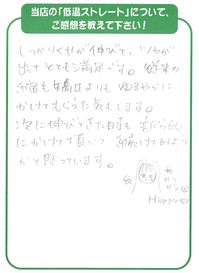 当店の「低温ストレート」について、
ご感想を教えて下さい!
しっかりくせが伸びて、ツヤが
出てとても満足です。従来の
縮毛矯正よりもゆるやかに
かけてもらった気もします。
次に伸びてきた時も
にかけて頂いて 続けてみよう
かと思っています。
Happy